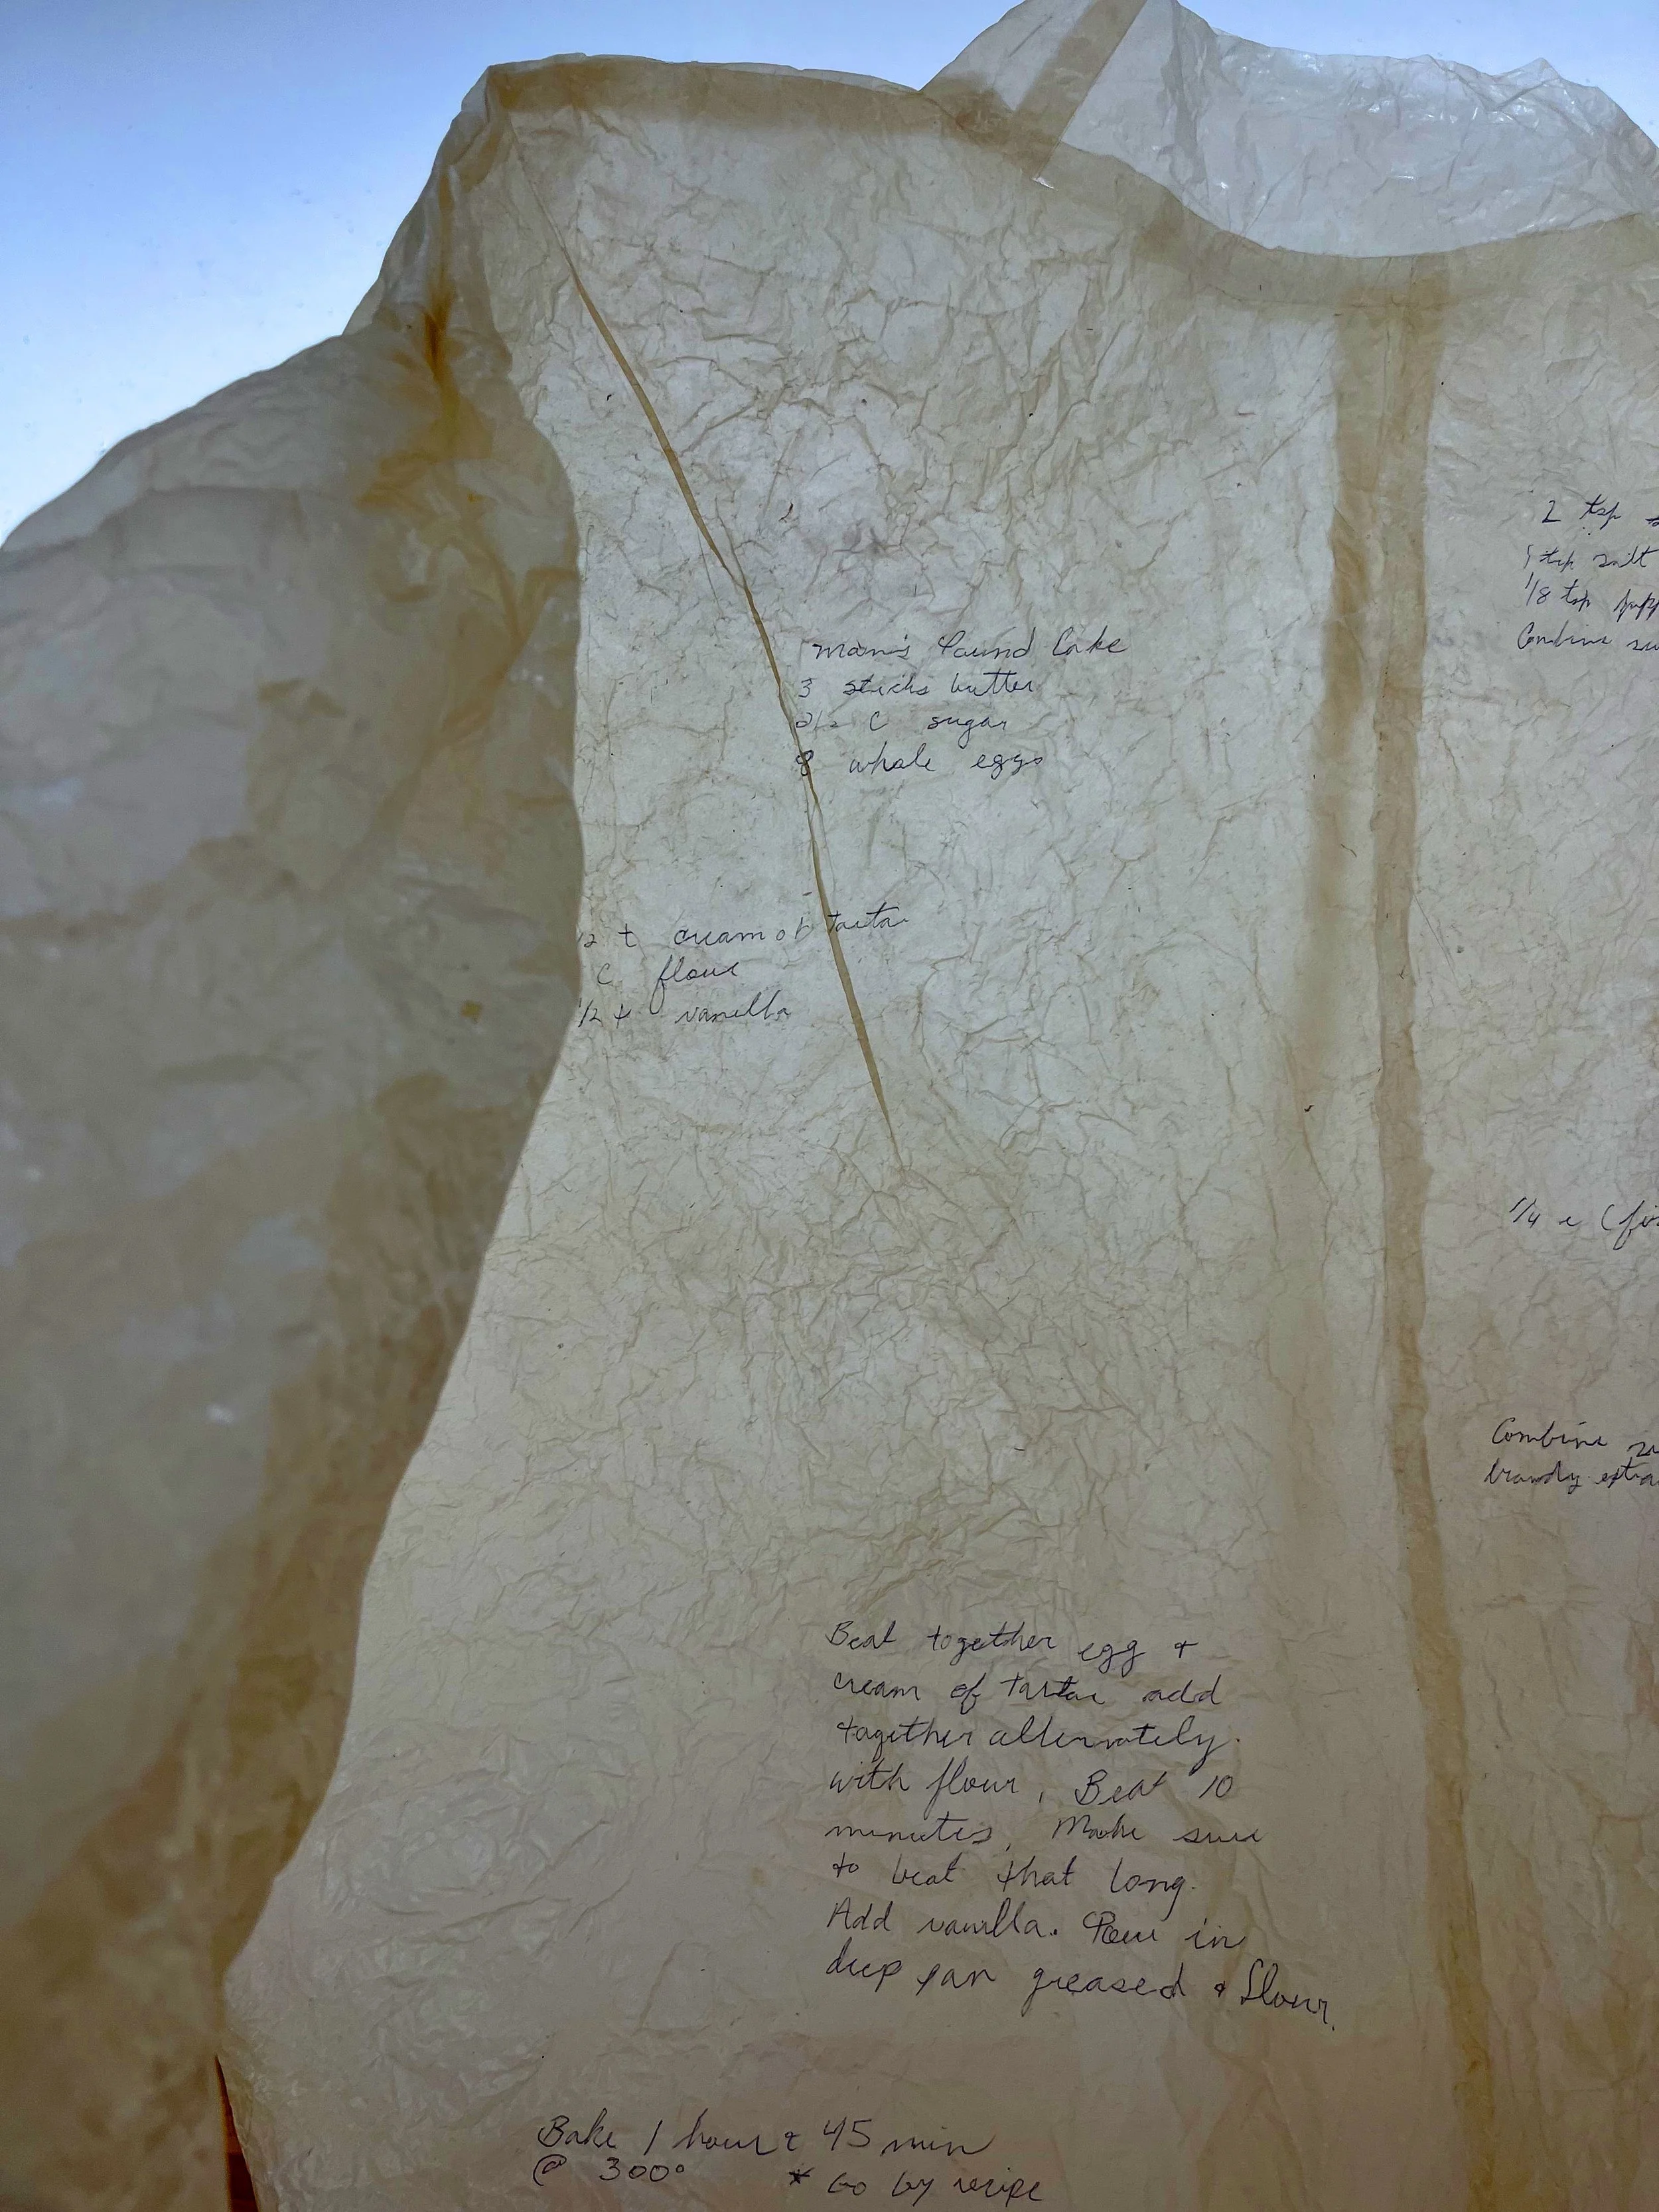 Mom's Pound Cake
3 sticks butter
2 1/2 C sugar
8 whole eggs
1/2 t cream of tartar
C flour
1/2 t vanilla
Beat together egg +
cream of tartar add
together alternately
with flour, Beat 10
minutes, Make sure
to beat that long.
Add vanilla. Pour in
deep pan greased + flour.
Bake 1 hour + 45 min
@ 300° * Go by recipe
2 tsp
1 tsp salt
1/8 tsp pepp
Combine
1/4 c (fir
Combine
brandy extra